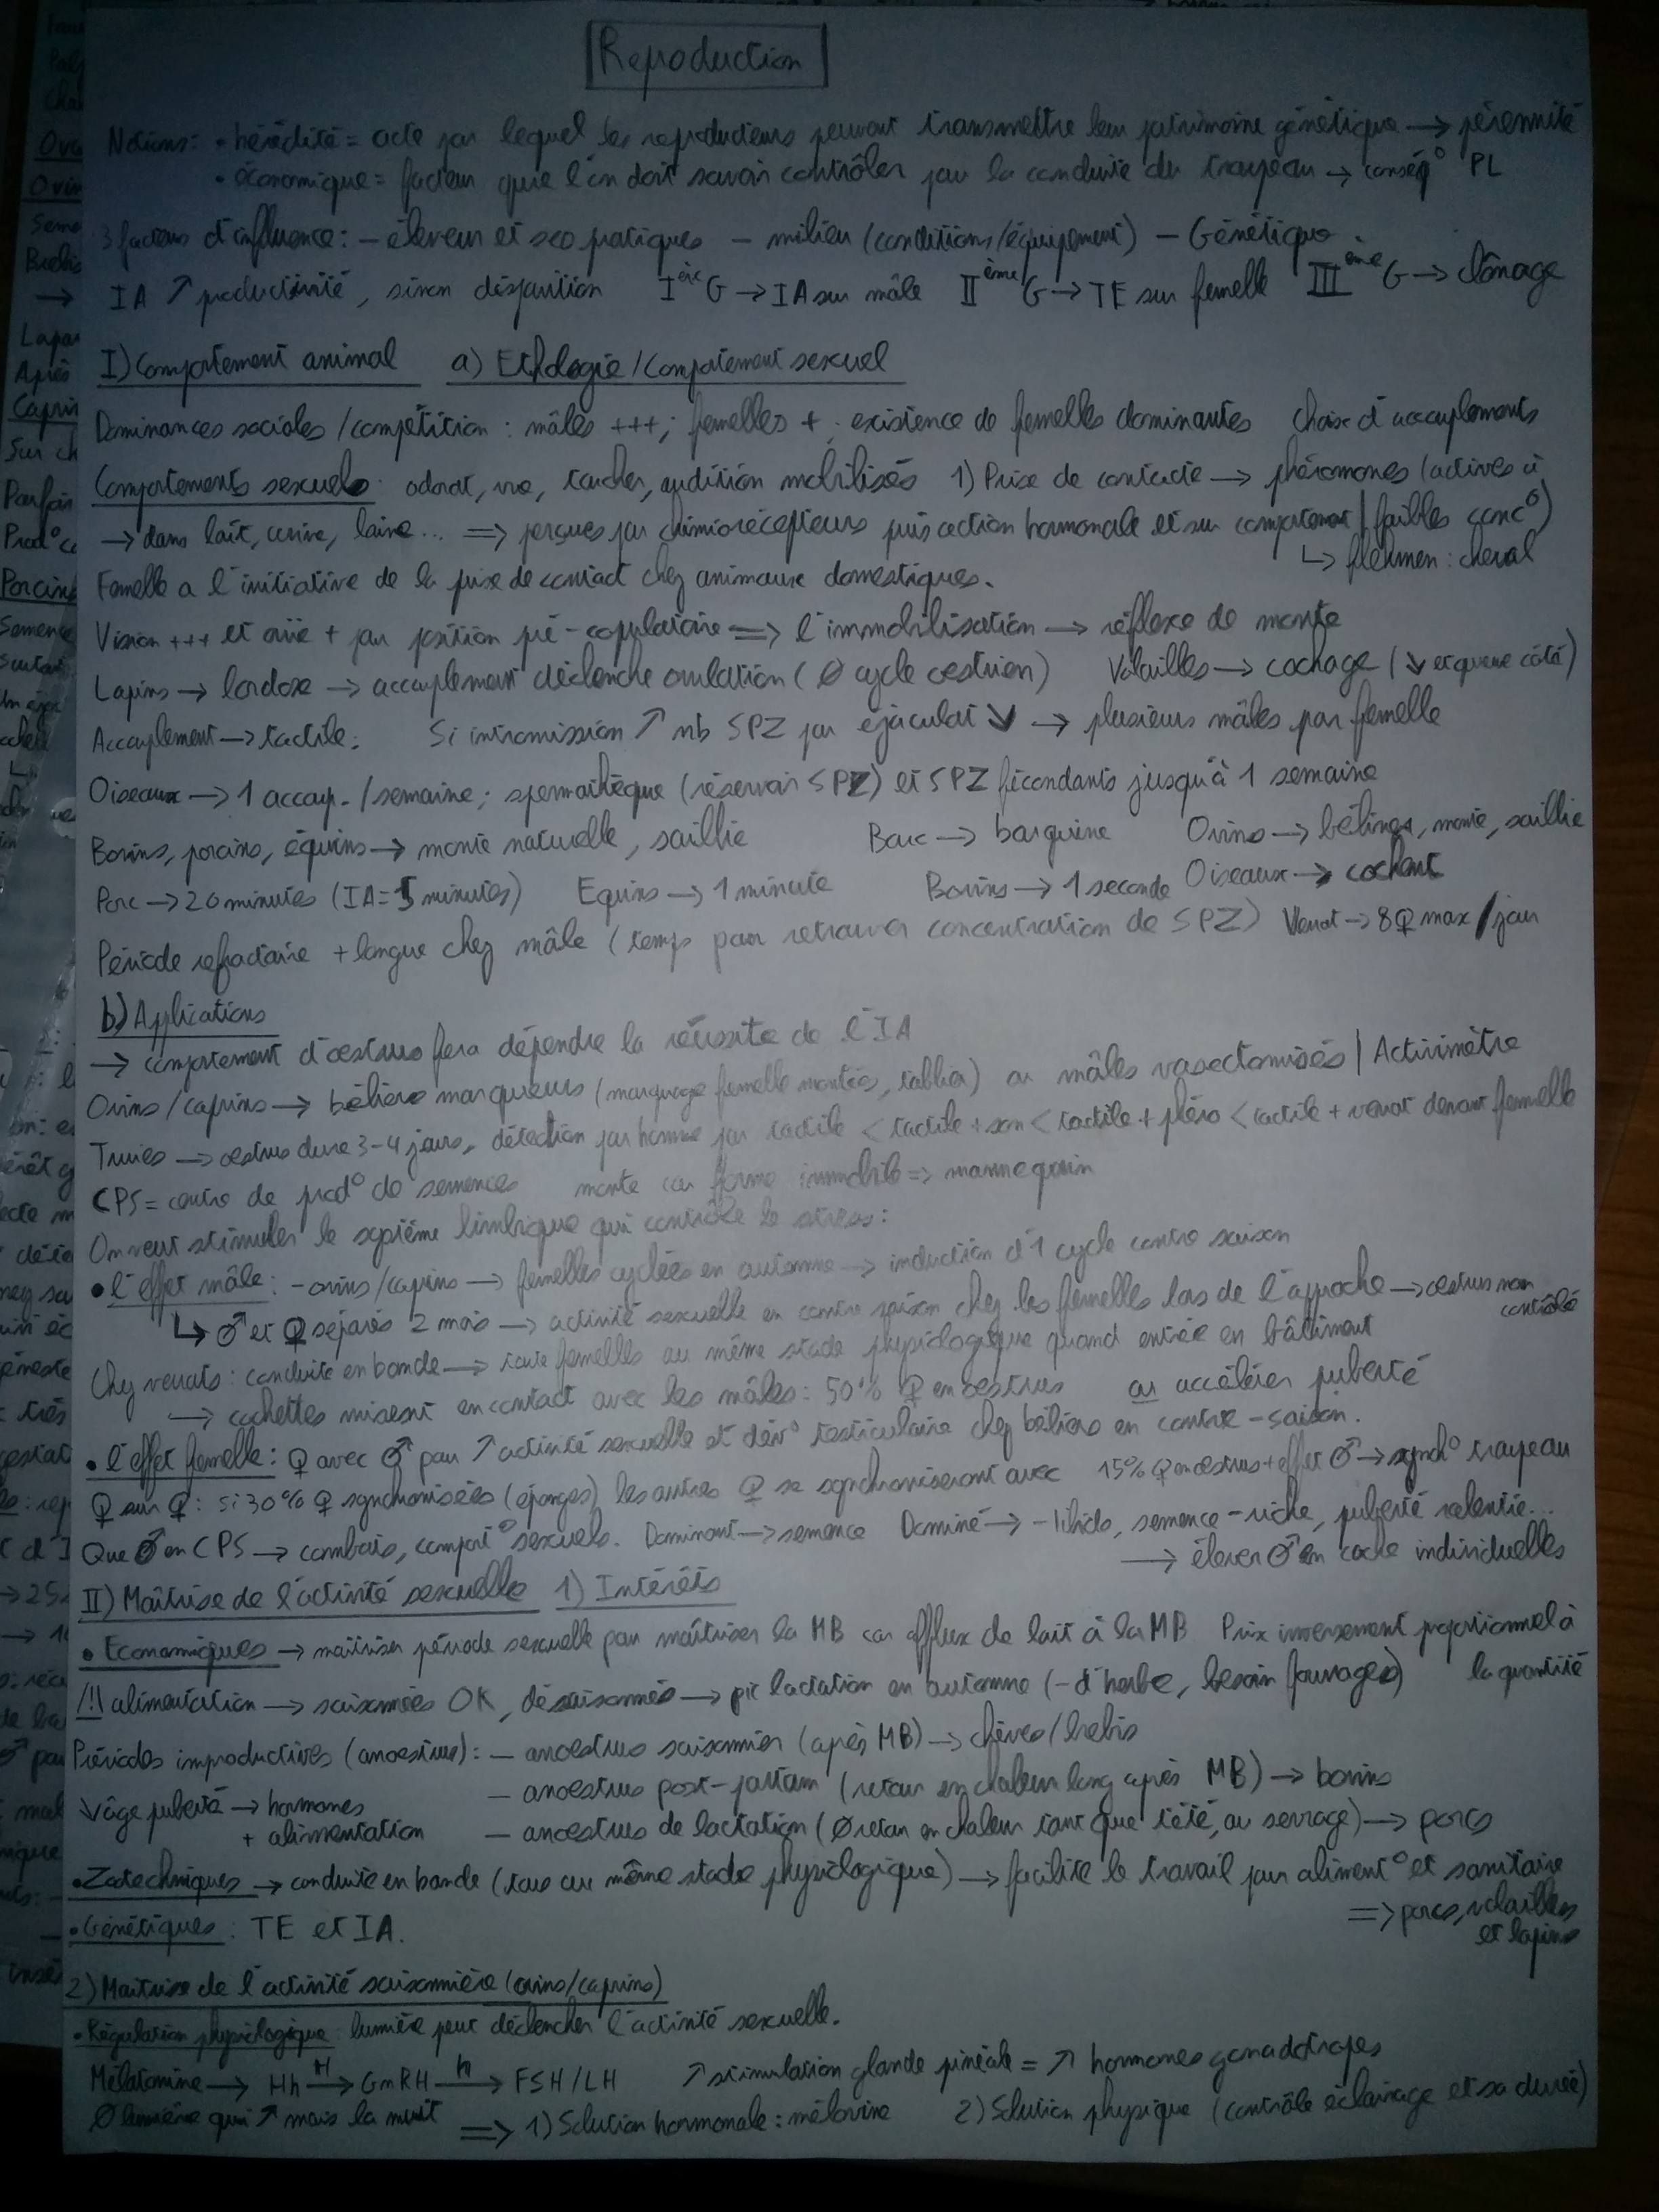 Reproduction
Notions: • hérédité = acte par lequel les reproducteurs peuvent transmettre leur patrimoine génétique → pérennité
• économique = facteur que l'on doit savoir contrôler par la conduite du troupeau → conséq° PL
3 facteurs d'influence: - éleveur et ses pratiques - milieu (conditions/équipement) - Génétique
IA ↗ productivité, sinon disparition Ière G → IA sur mâle IIème G → TE sur femelle IIIème G → clônage
I) Comportement animal a) Ethologie/Comportement sexuel
Dominances sociales / compétition : mâles +++; femelles + ; existence de femelles dominantes choix d'accouplements
Comportements sexuels: odorat, vue, toucher, audition mobilisés 1) Prise de contacte → phéromones (actives à
→ dans lait, urine, laine... => perçues par chimiorécepteurs puis action hormonale et sur comportement | faibles conc°)
↳ flehmen : cheval
Femelle a l'initiative de la prise de contact chez animaux domestiques.
Vision +++ et ouïe + par position pré-copulatoire => l'immobilisation → réflexe de monte
Lapins → lordose → accouplement déclenche ovulation (Ø cycle oestrien) Volailles → cochage (↘ et queue côté)
Accouplement → tactile; Si intromission ↗ nb SPZ par éjaculat ↘ → plusieurs mâles par femelle
Oiseaux → 1 accoup. /semaine; spermathèque (réservoir SPZ) et SPZ fécondants jusqu'à 1 semaine
Bovins, porcins, équins → monte naturelle, saillie Bouc → bouquine Ovins → bélines, monte, saillie
Porc → 20 minutes (IA = 5 minutes) Equins → 1 minute Bovins → 1 seconde Oiseaux → cochent
Période refractaire + longue chez mâle (temps pour retrouver concentration de SPZ) Verrat → 8♀ max / jour
b) Applications
→ comportement d'oestrus fera dépendre la réussite de l'IA
Ovins / caprins → béliers marqueurs (marquage femelle montées, tablier) ou mâles vasectomisés | Activimètre
Truies → oestrus dure 3-4 jours, détection par homme par tactile < tactile + son < tactile + phéro < tactile + verrat devant femelle
CPS = centre de prod° de semences monte car forme immobile => mannequin
On veut stimuler le système limbique qui contrôle le stress:
• l'effet mâle: - ovins/caprins → femelles cyclées en automne → induction d'1 cycle contre saison
↳ ♂ et ♀ séparés 2 mois → activité sexuelle en contre saison chez les femelles lors de l'approche → oestrus non contrôlé
Chez verrats: conduite en bande → toute femelles au même stade physiologique quand entrée en bâtiment
→ cochettes misent en contact avec les mâles: 50% ♀ en oestrus ou accélérer puberté
• l'effet femelle: ♀ avec ♂ pour ↗ activité sexuelle et dév° testiculaire chez béliers en contre-saison.
♀ sur ♀: si 30% ♀ synchronisées (éponges) les autres ♀ se synchroniseront avec 15% ♀ en oestrus + effet ♂ → synch° troupeau
Que ♂ en CPS → combats, comport° sexuels. Dominant → semence Dominé → - libido, semence - riche, puberté ralentie...
→ élever ♂ en cache individuelles
II) Maîtrise de l'activité sexuelle 1) Intérêts
• Economiques → maitriser période sexuelle pour maîtriser la MB car afflux de lait à la MB Prix inversement proportionnel à
la quantité
/!\ alimentation → saisonnées OK, désaisonnés → pic lactation en automne (- d'herbe, besoin fourrages)
Périodes improductives (anoestrus): - anoestrus saisonnier (après MB) → chèvres/brebis
- anoestrus post-partum (retour en chaleur long après MB) → bovins
↘ âge puberté → hormones
+ alimentation
- anoestrus de lactation (Ø retour en chaleur tant que tété, ou sevrage) → porcs
• Zootechniques → conduite en bande (tous au même stade physiologique) → facilite le travail pour aliment° et sanitaire
=> porcs, volailles
et lapins
• Génétiques : TE et IA.
2) Maitrise de l'activité saisonnière (ovins/caprins)
• Régulation physiologique: lumière peut déclencher l'activité sexuelle.
Mélatonine → Hh H→ GnRH h→ FSH/LH ↗ stimulation glande pinéale = ↗ hormones gonadotropes
Ø lumière qui ↗ mais la nuit => 1) Solution hormonale : mélovine 2) Solution physique (contrôle éclairage et sa durée)